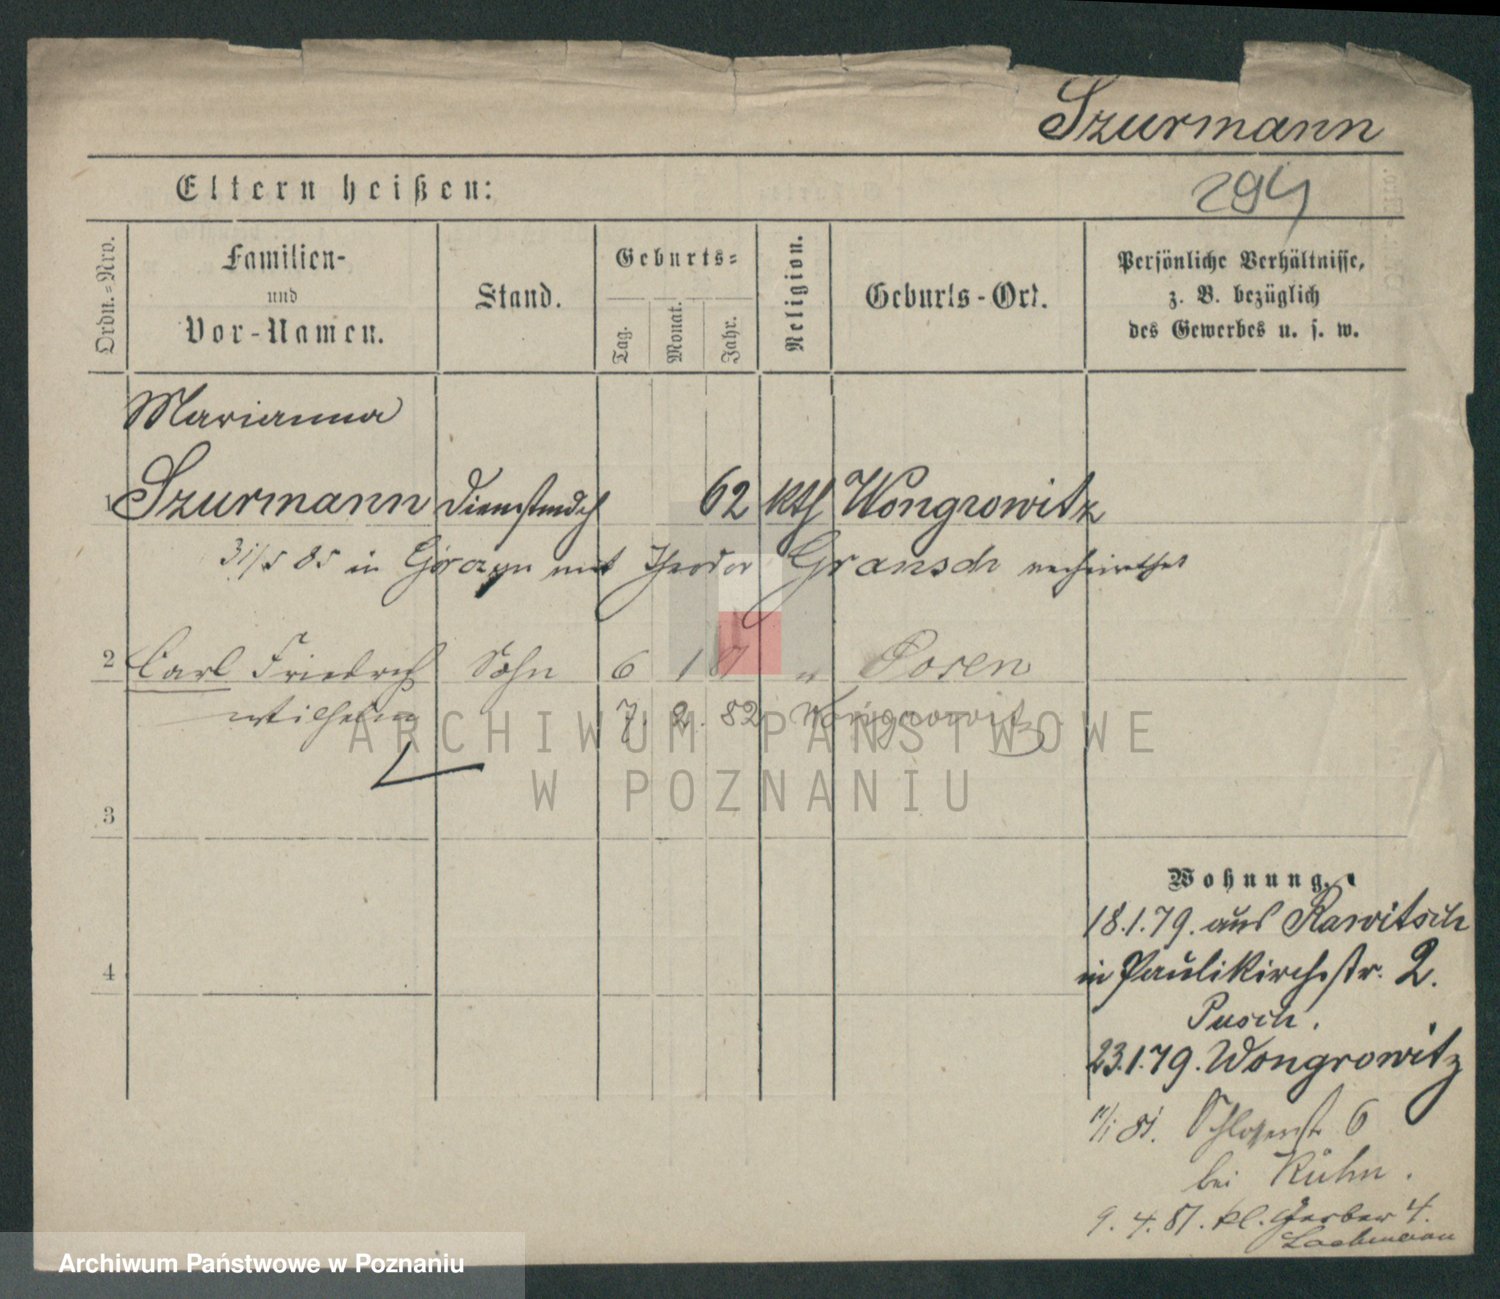 Szurmann
Eltern heißen:
294
Ordn.-Nro.
Familien-
und
Vor-Namen.
Stand.
Geburts-
Tag.
Monat.
Jahr.
Religion.
Geburts-Ort.
Persönliche Verhältnisse,
z. B. bezüglich
des Gewerbes u. s. w.
Marianna
1 Szurmann Dienstmdch 62 kth Wongrowitz
31/5 85 in Górczyn mit Theodor Gransch verheirathet
2 Carl Friedrich Sohn 6 1 81 " Posen
Wilhelm 7. 2. 82 Wongrowitz
3
4
Wohnung.
18.1.79. aus Rawitsch
in Paulikirchstr. 2.
Pusch.
23.1.79. Wongrowitz
11/1 81. Schlosserstr 6
bei Kühn.
9. 4. 81. kl. Gerber 4.
ARCHIWUM PAŃSTWOWE
W POZNANIU
Archiwum Państwowe w Poznaniu